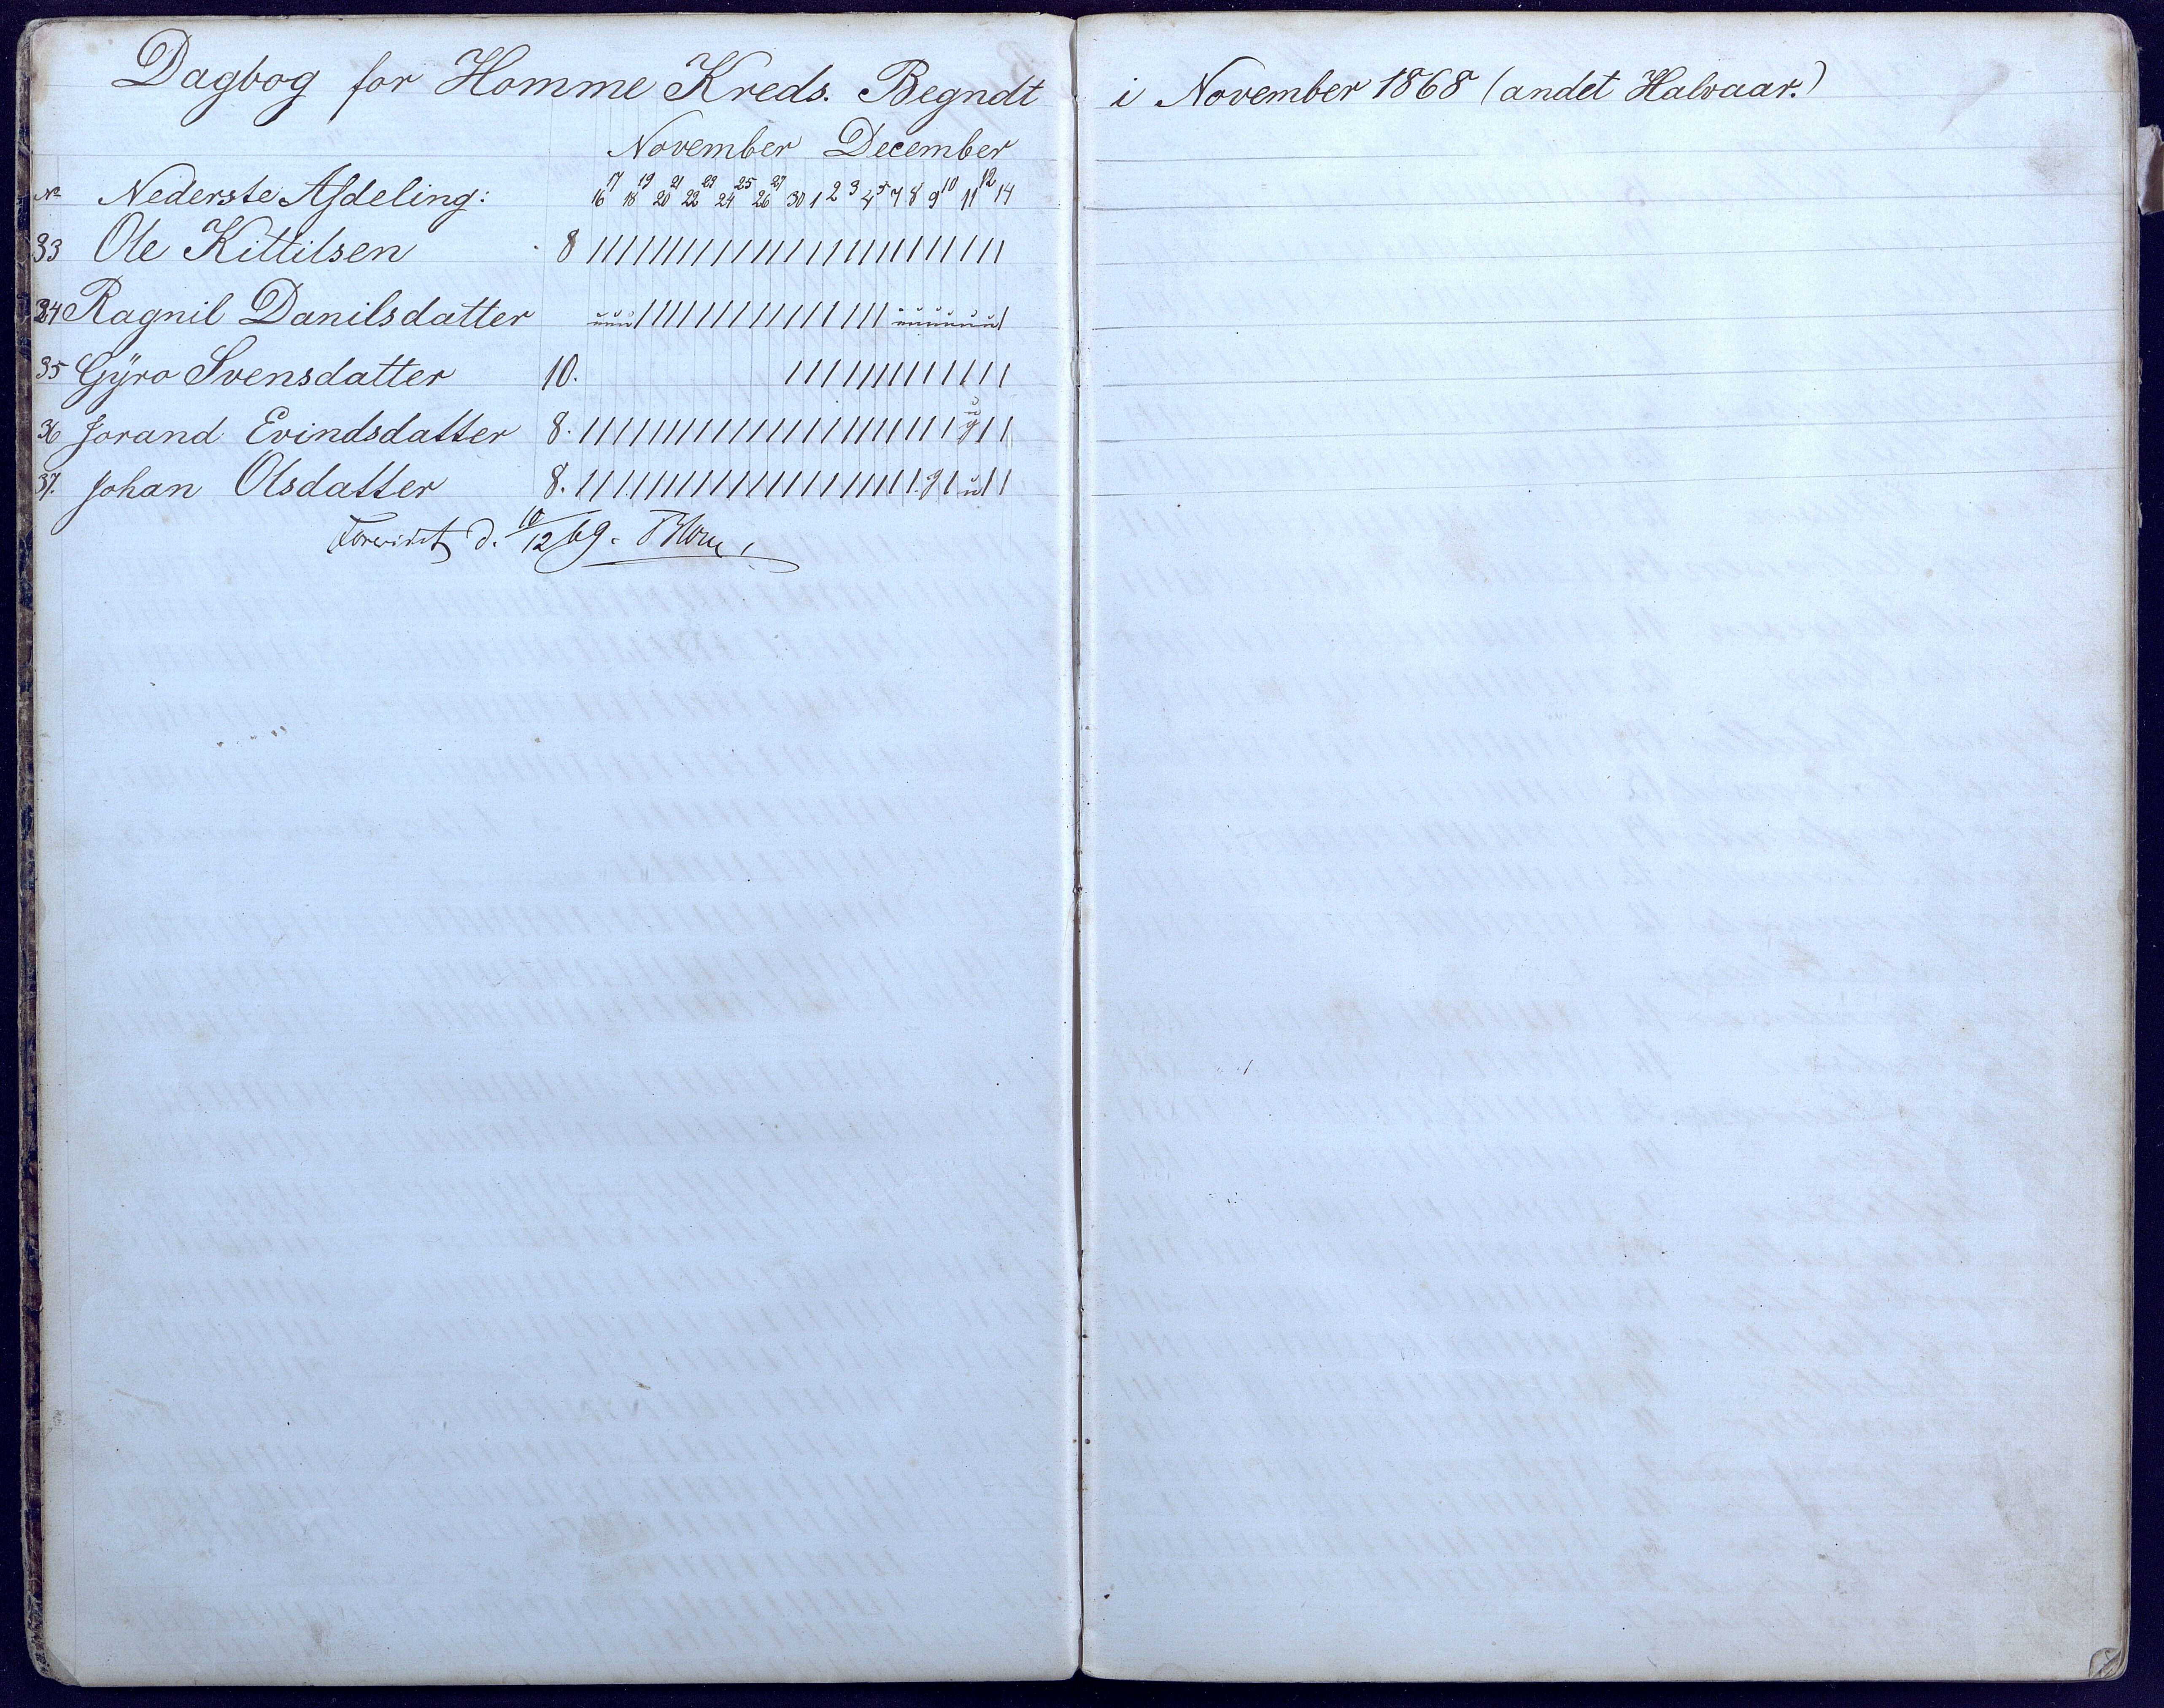 Dagbog for Homme Kreds. Begndt i November 1868 (andet Halvaar.)
November December
No Nederste Afdeling: 16 17 18 19 20 21 22 23 24 25 26 27 30 1 2 3 4 5 7 8 9 10 11 12 14
33 Ole Kittilsen 8 / / / / / / / / / / / / / / / / / / / / / / / / /
34 Ragnil Danilsdatter u u u u u / / / / / / / / / / / / / / / u u u u u u u /
35 Gÿro Svensdatter 10. / / / / / / / / / / / / /
36 Jorand Evindsdatter 8. / / / / / / / / / / / / / / / / / / / / / / u g / /
37. Johan Olsdatter 8. / / / / / / / / / / / / / / / / / / / / g / u / /
d. 10/12 69.